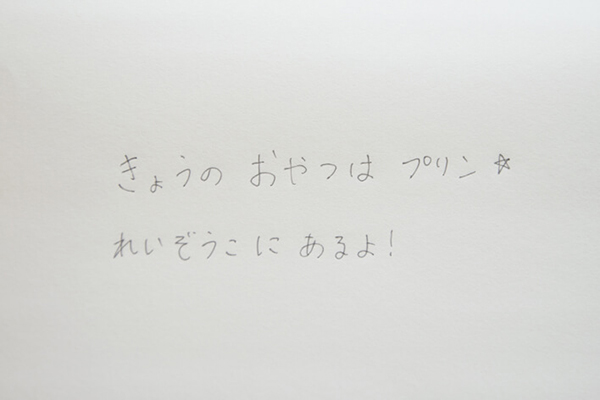 きょうの おやつは プリン☆
れいぞうこに あるよ!